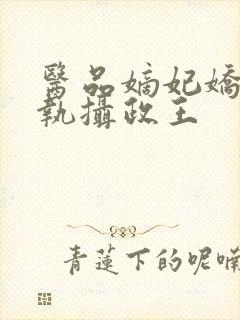 醫品嫡妃嬌
執攝政王
青蓮下的呢喃